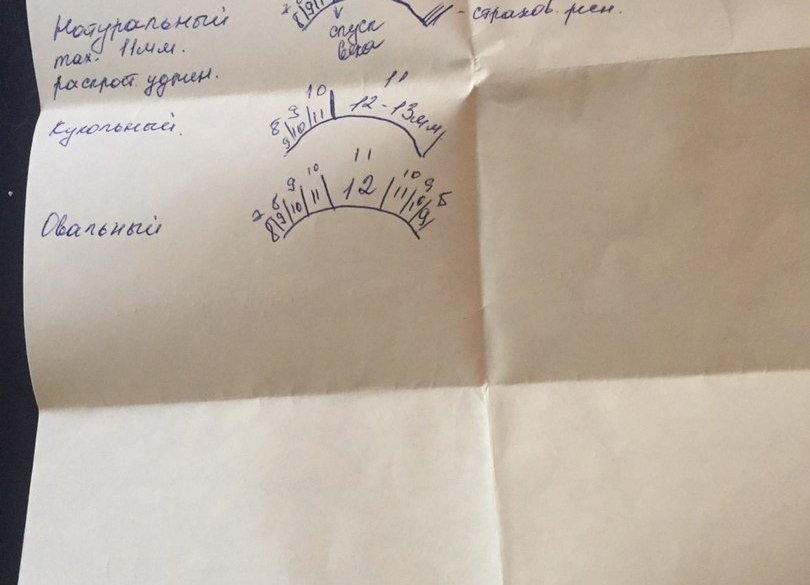 - страхов. рен.
Натуральный
спуск
века
max. 11мм.
распрост. удлин.
10 11
Кукольный.
8 9 12-13мм
9/10/11
11
7 8 9 10 12 10 9 8
8/9/10/11 11/10/9
Овальный